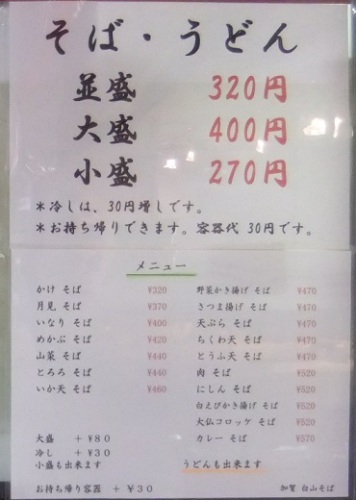 そば・うどん
並盛 320円
大盛 400円
小盛 270円
*冷しは、30円増しです。
*お持ち帰りできます。容器代 30円です。
メニュー
かけ そば ¥320
月見 そば ¥370
いなり そば ¥400
めかぶ そば ¥420
山菜 そば ¥440
とろろ そば ¥440
いか天 そば ¥460
野菜かき揚げ そば ¥470
さつま揚げ そば ¥470
天ぷら そば ¥470
ちくわ天 そば ¥470
とうふ天 そば ¥470
肉 そば ¥520
にしん そば ¥520
白えびかき揚げ そば ¥520
大仏コロッケ そば ¥520
カレー そば ¥570
大盛 +¥80
冷し +¥30
小盛も出来ます
うどんも出来ます
お持ち帰り容器 +¥30
加賀 白山そば